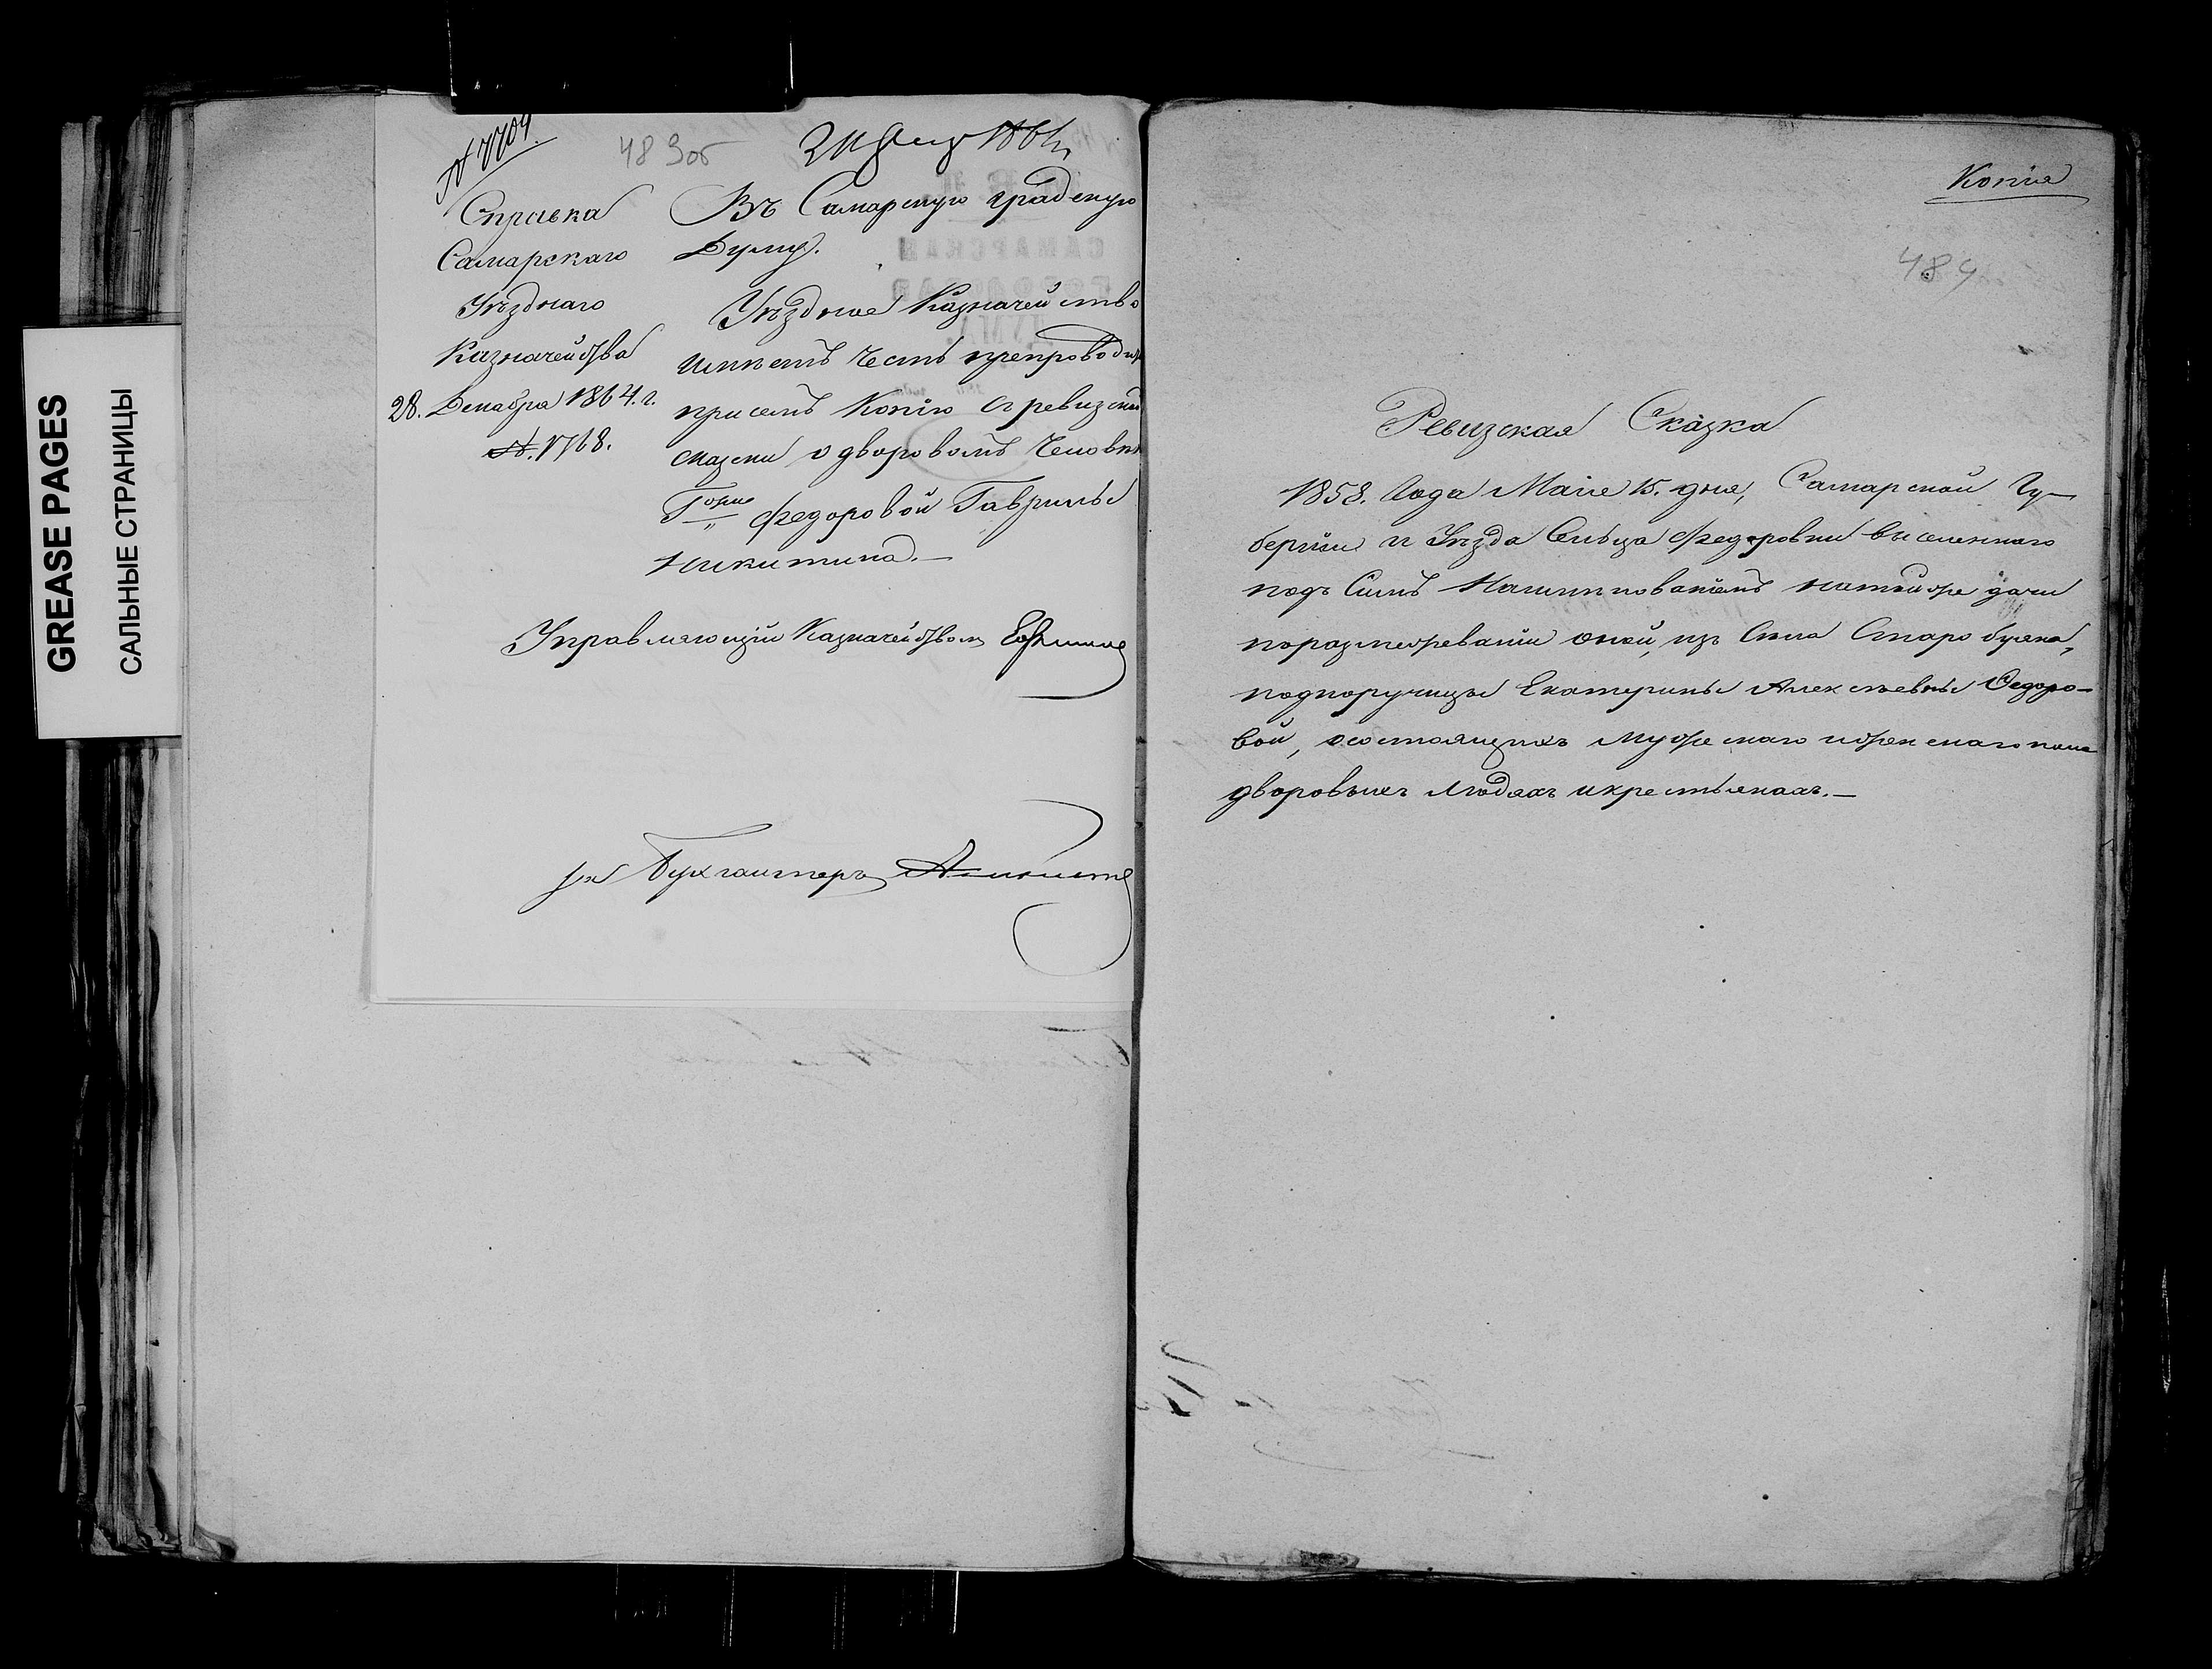 GREASE PAGES
САЛЬНЫЕ СТРАНИЦЫ
483об
Справка
Самарскаго
Уѣзднаго
Казначейства
28. Декабря 1864. г.
№. 1768.
Въ Самарскую градскую
Думу.
Уѣздное Казначейство
имѣетъ честь препроводить
при семъ Копію съ ревизской
сказки о дворовомъ человѣкѣ
Г-ожи Федоровой Гаврилы
Никитина.—
Управляющій Казначействомъ
Бухгалтеръ
Копія
484
Ревизская Сказка
1858. Года Маія 15. дня, Самарской Гу-
берніи и Уѣзда Сельца Федоровки выселеннаго
подъ симъ на
по размежеваніи оной, изъ Села Старо буяна,
подпоручицы Екатерины Алексѣевны Федоро-
вой, о состоящихъ мужескаго и женскаго пола
дворовыхъ людяхъ и крестьянахъ.—